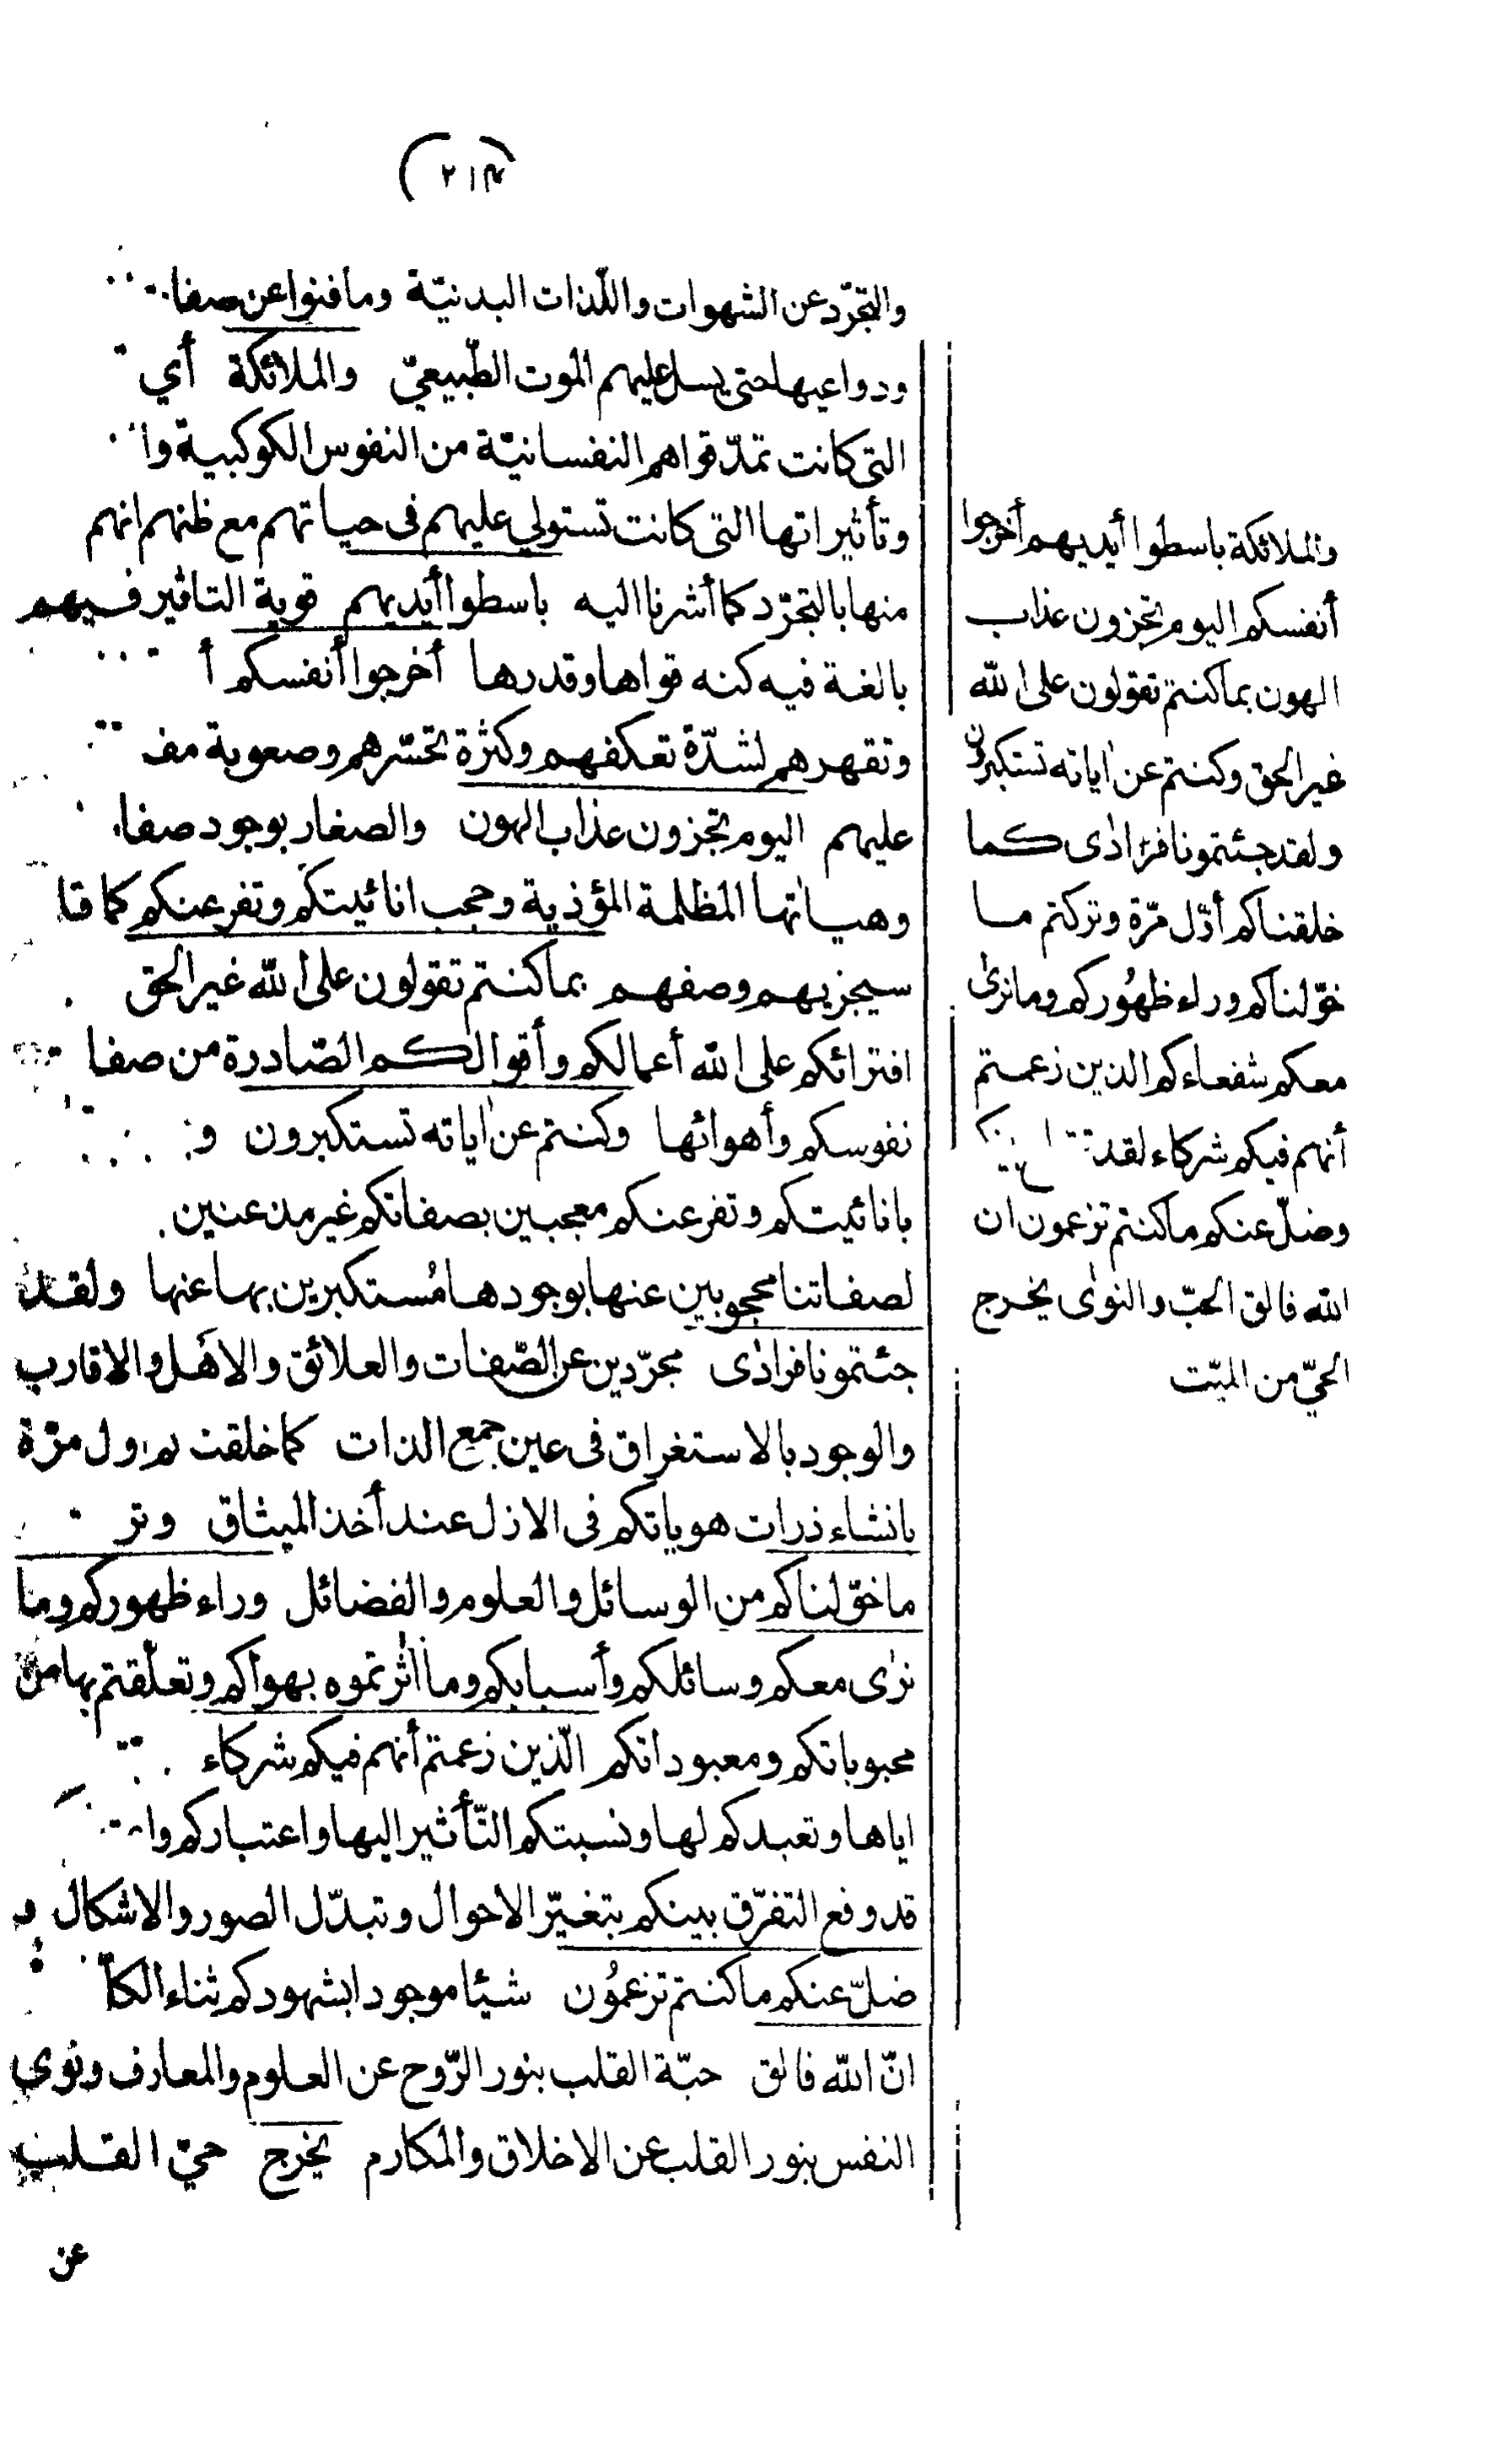 (٢١٣)
والتجرّد عن الشهوات واللّذات البدنيّة وما فنوا عن
ودواعيها حتى يسل عليهم الموت الطّبيعيّ والملائكة أي
التى كانت تمدّ قواهم النفسانيّة من النفوس الكوكبية
وتأثيراتها التى كانت تستولي عليهم فى حياتهم مع ظنهم انهم
منها بالتجرّد كما أشرنا اليه باسطوا أيديهم قوية التاثير فيهم
بالغة فيه كنه قواها وقدرها أخرجوا أنفسكم
وتقهرهم لشدّة تعكفهم وكثرة تحسّرهم وصعوبة
عليهم اليوم تجزون عذاب الهون والصغار بوجود
وهياٰتها المظلمة المؤذية وحجب انائيتكم وتفرعنكم كما
سيجزيهم وصفهم بما كنتم تقولون على الله غير الحق
افترائكم على الله أعمالكم وأقوالكم الصّادرة من
نفوسكم وأهوائها وكنتم عن اٰياته تستكبرون
بانائيتكم وتفرعنكم معجبين بصفاتكم غير مذعنين
لصفاتنا محجوبين عنها بوجودها مُستكبرين بها عنها ولقد
جئتمونا فرادٰى مجرّدين عن الصّفات والعلائق والاهَل والاقارب
والوجود بالاستغراق فى عين جمع الذات كما مرّة
بانشاء ذرات هوياتكم فى الازل عند أخذ الميثاق
ما خوّلناكم من الوسائل والعلوم والفضائل وراء ظهوركم وما
نرٰى معكم وسائلكم وأسبابكم وما اٰثرتموه بهواكم وتعلّقتم بها من
محبوباتكم ومعبوداتكم الّذين زعمتم أنهم فيكم شركاء
اياها وتعبدكم لها ونسبتكم التّأثير اليها واعتباركم
قد وقع التفرّق بينكم بتغيّر الاحوال وتبدّل الصور والاشكال
ضلّ عنكم ما كنتم تزعمُون شيئا موجودا بشهودكم
انّ الله فالق حبّة القلب بنور الرّوح عن العلوم والمعارف ونوى
النفس بنور القلب عن الاخلاق والمكارم يخرج حيّ القلب
عن
والملائكة باسطوا أيديهم أخرجوا
أنفسكم اليوم تجزون عذاب
الهون بما كنتم تقولون على الله
غير الحق وكنتم عن اٰياته تستكبرون
ولقد جئتمونا فرادٰى كما
خلقناكم أوّل مرّة وتركتم ما
خوّلناكم وراء ظهُوركم وما نرٰى
معكم شفعاءكم الذين زعمتم
أنهم فيكم شركاء لقد
وضلّ عنكم ما كنتم تزعمون ان
الله فالق الحبّ والنوٰى يخرج
الحيّ من الميّت